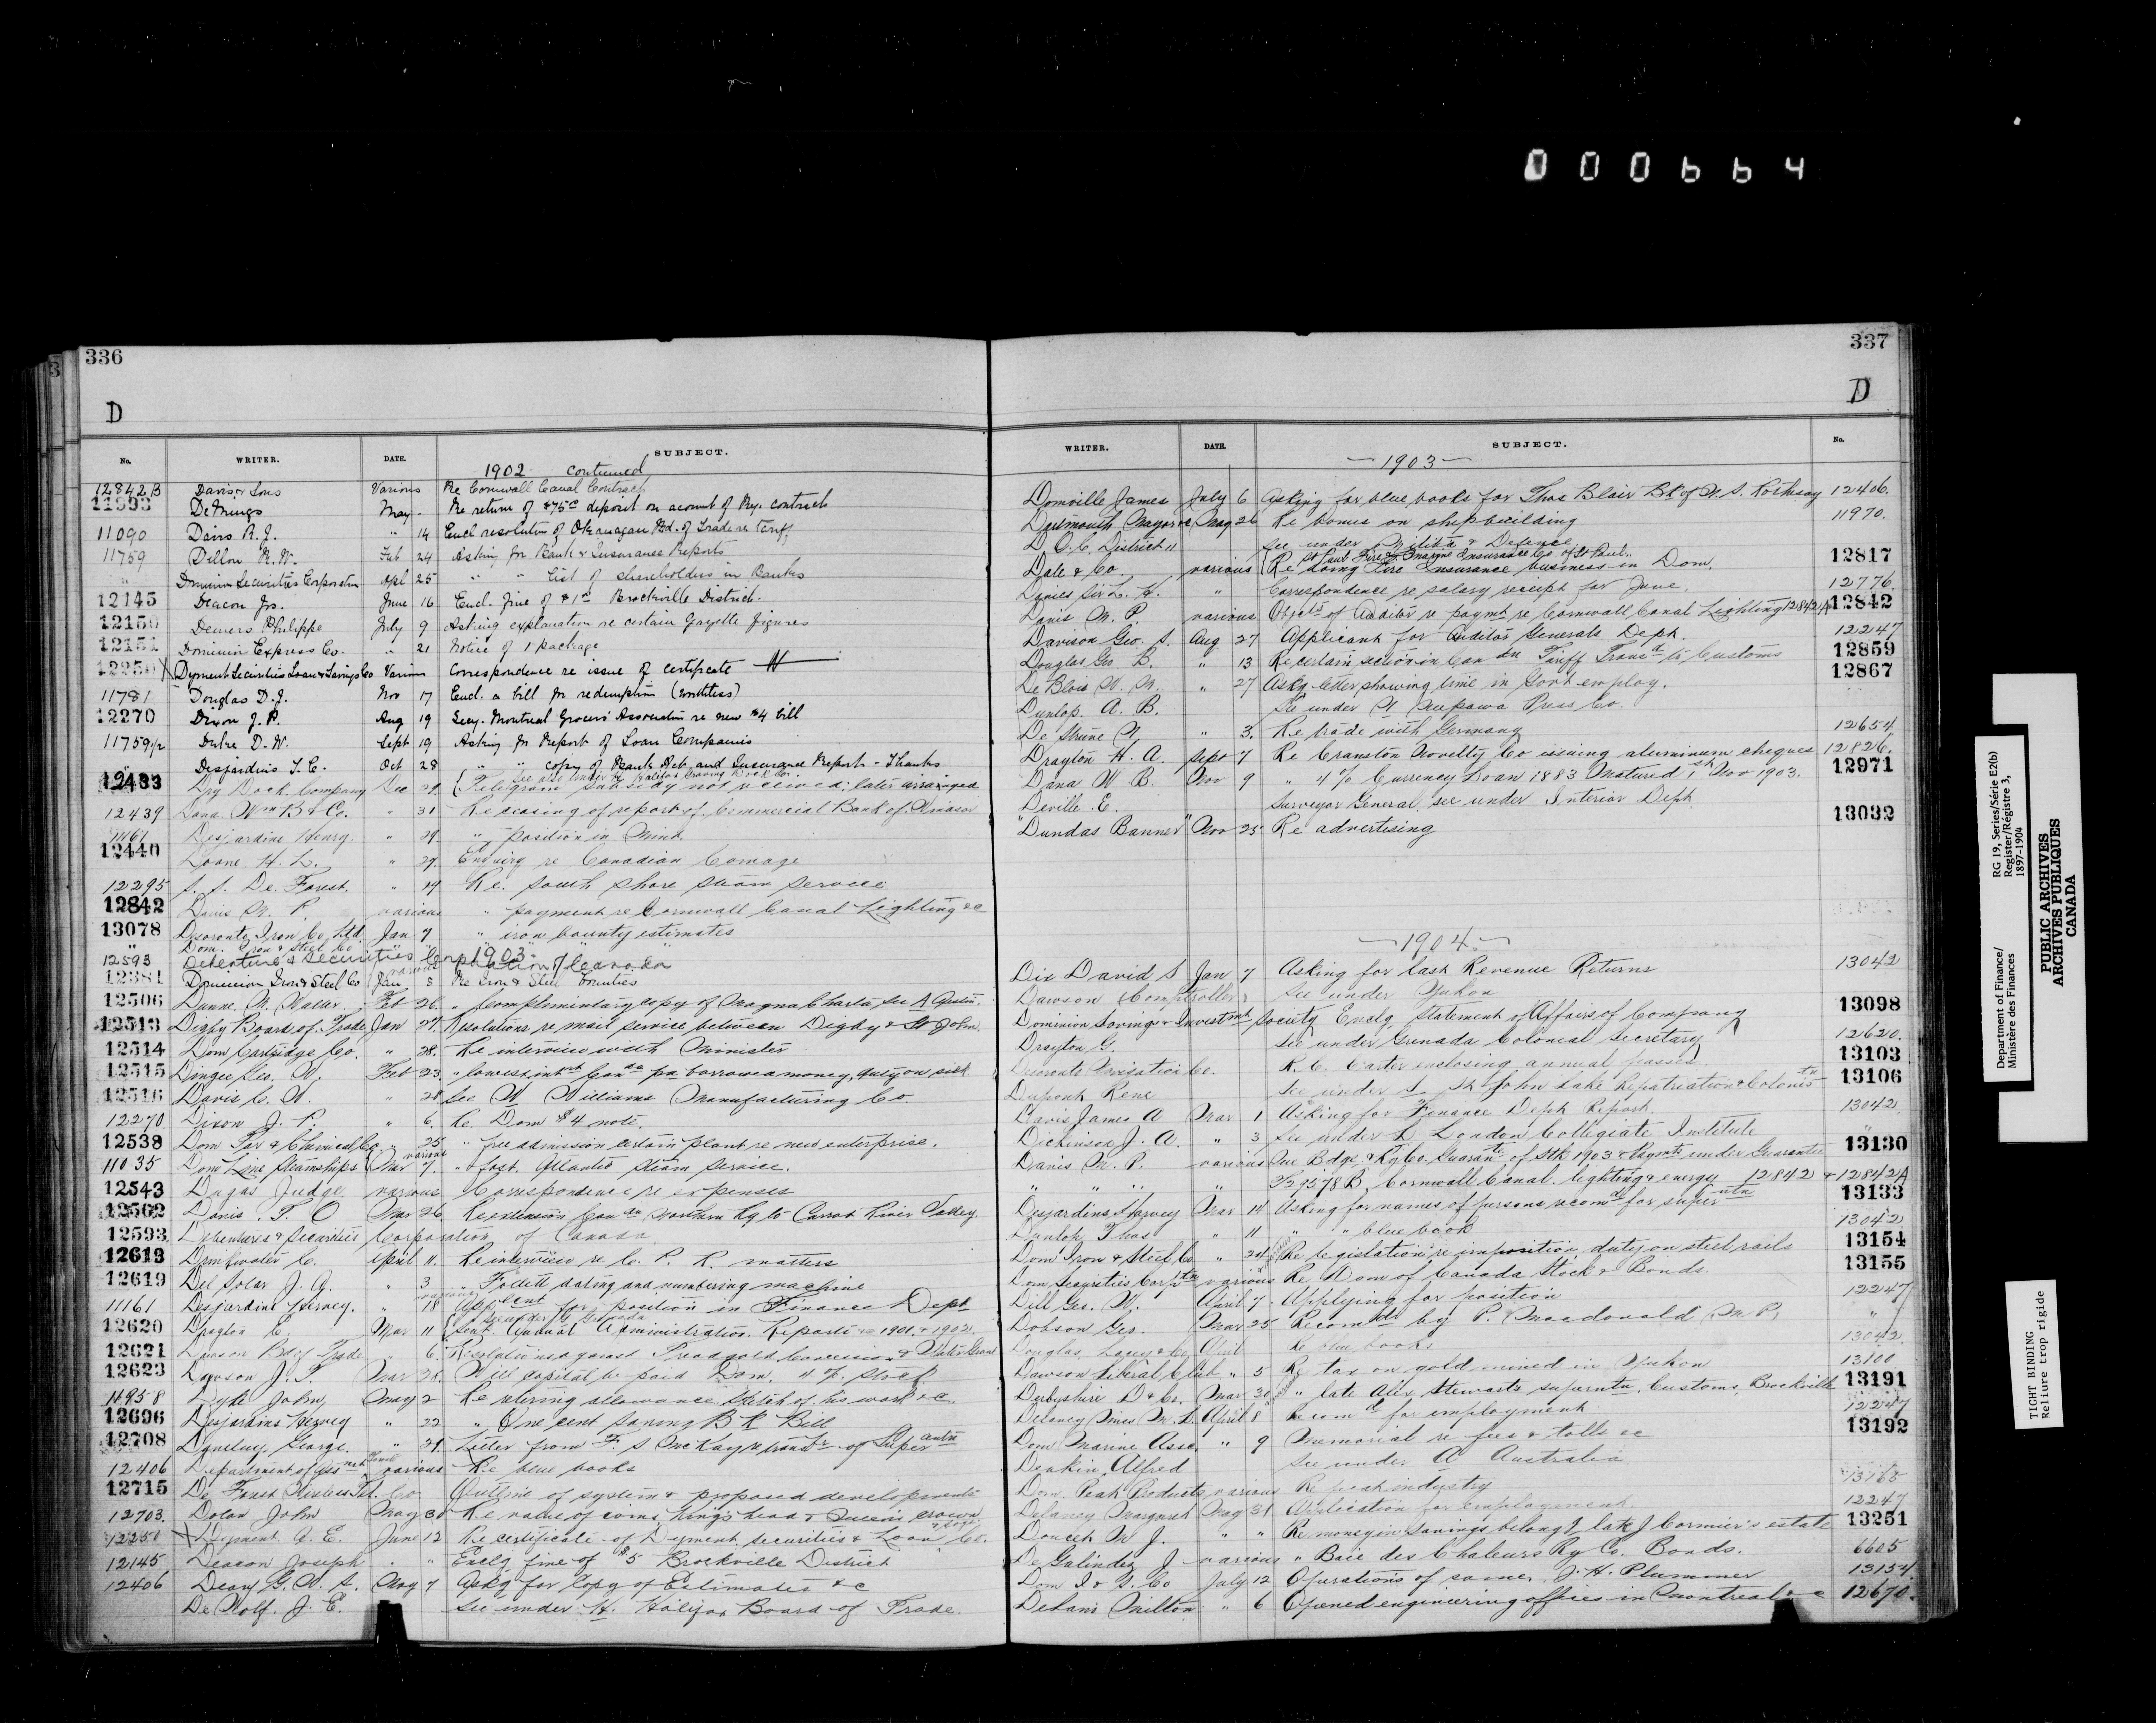 000664
336
D
No. WRITER. DATE. SUBJECT.
1902 continued
12842B Davis & Sons Various Re Cornwall Canal Contract
11993 May - Re return of $75 00 deposit on account of Ry. contract
11090 Davis R. J. " 14 Encl resolution of Okanagan Bd. of Trade re Tariff
11759 Dillon R. W. Feb 24 Asking for Bank & Insurance Reports
" Dominion Securities Corporation Apl 25 " " List of shareholders in Banks
12145 Deacon Jos. June 16 Encl. fine of $1 00 Brockville District.
12150 Demers Philippe July 9 Asking explanation re certain Gazette figures
12151 Dominion Express Co. " 21 Notice of 1 package
12250 X Dyment Securities Loan & Savings Co Various Correspondence re issue of certificate
11781 Douglas D. J. Nov 17 Encl. a bill for redemption (worthless)
12270 Dixon J. P. Aug 19 Secy. Montreal Grocers Association re new $4 bill
11759 1/2 D. W. Sept 19 Asking for Report of Loan Companies
" Desjardins T. C. Oct 28 " " copy of Bank Deb. and Insurance Report - Thanks
See also under H Halifax Graving Dock Co.
12433 Dry Dock Company Dec 29 Telegram subsidy not received; later arranged
12439 Dana Wm B & Co. " 31 Re ceasing of report of Commercial Bank of Windsor
11161 Desjardins Henry. " 29. " position in Mint
12440 Doane H. L. " 29. Enquiry re Canadian Coinage
12295 S. S. De Forest. " 29 Re. south shore steam service
12842 Davis M. P. various " payment re Cornwall Canal Lighting &c
13078 Deseronto Iron Co. Ltd. Jan 7 " iron bounty estimates
" Dom. Iron & Steel Co " " " "
1903
12593 Debenture & Securities Corporation of Canada
12381 Dominion Iron & Steel Co Jan 8 Re Iron & Steel Bounties
12506 Dunne. W. Walter Feb 26. " Complimentary copy of Magna Charta, see A Austin.
12513 Digby Board of Trade Jan 27. Resolutions re mail service between Digby & St John
12514 Dom Cartridge Co. " 28. Re interview with Minister
12515 Dingee Geo. W. Feb 23.
12516 Davis C. W. " 28 See W Williams Manufacturing Co.
12270 Dixon J. P. " 6. Re. Dom $4 note.
12538 Dom Tar & Chemical Co " 25. " free admission certain plant re new enterprise.
11035 Dom Line Steamships various Mar 7. " fast Atlantic steam service.
12543 Dugas Judge various Correspondence re expenses
12562 Davis. T. O Mar 26. Re extension Canadn Northern Ry to Carrot River Valley.
12593 Debentures & Securities Corporation of Canada
12613 Drinkwater C. April 11. Re interview re C. P. R. matters
12619 Del Solar J. A. " 3 " Follett dating and numbering machine
11161 Desjardins Hervey. " 18 Applicant for position in Finance Dept
See under G Grenada
12620 Drayton Mar 11 Sent Annual Administration Reports 1901 & 1902.
12621 Dawson Bd of Trade " 6. Resolutions against Treadgold Concession & Water Grant
12623 Dawson J. T. Mar 28. Will capital be paid Dom. 4% Stock
11958 Dyke John May 2 Re retiring allowance sketch of his work &c.
12696 Desjardins Hervey " 22 " One cent Saving Bk Bill
12708 George. " 29. Letter from F. S McKay re transfr of Superantn
12406 Department of various Re blue books
12715 De Forest Wireless Tel. Co. Outline of system & proposed developments
12703. Dolan John May 30 Re value of coins, Kings head & Queens crown
12250 X Dyment A. E. June 12 Re certificate of Dyment securities & Loan & Savgs Co.
12145 Deacon Joseph " " Enclg fine of $5 Brockville District
12406 Deary G. W. S. Aug 7 Askg for Copy of Estimates &c
De Wolf. J. E. See under H. Halifax Board of Trade.
337
D
WRITER. DATE. SUBJECT. No.
1903
Domville James July 6 Asking for blue books for Thos Blair Bk of N. S. Rothesay 12406.
Dartmouth Mayor of May 26 Re bonus on shipbuilding 11970.
D. O. C. District 11 See under Militia & Defence.
St Paul Fire & Marine Insurance Co. of St Paul.
Dale & Co. various Re doing Fire Insurance business in Dom. 12817
Davies Sir L. H. " Correspondence re salary receipt for June. 12776.
Davis M. P. various Objectn of Auditor re paymt re Cornwall Canal Lighting 12842A 12842
Davison Geo. S. Aug 27 Applicant for Auditor Generals Dept. 12247
Douglas Geo. B. " 13 Re certain section in Candn Tariff Transd to Customs 12859
De Blois W. M. " 27 Askg letter showing time in Govt employ. 12867
Dunlop. A. B. See under N Neepawa Press Co.
De " 3. Re trade with Germany 12654
Drayton H. A. Sept 7 Re Cranston Novelty Co issuing aluminum cheques 12826.
Dana W B. Nov 9 " 4% Currency Loan 1883 Matured 1st Nov 1903. 12971
Deville E. Surveyor General. see under Interior Dept
"Dundas Banner" Nov 25 Re advertising 13032
1904.
Dix David S Jan 7 Asking for last Revenue Returns 13042
Dawson (Comptroller) See under Yukon
Dominion Savings & Investmt Society Enclg Statement of Affairs of Company 13098
Drayton G. See under Grenada Colonial Secretary 12620.
Deseronto Navigation Co. R. C. Carter enclosing annual passes 13103
Dupont Rene See under L Lk St John Lake Repatriation & Coloniztn 13106
Davis James A Mar 1 Asking for Finance Dept Report. 13042
Dickinson J. A. " 3 See under L London Collegiate Institute "
Davis M. P. various Que Bdge & Ry Co. Guarante of Stk 1903 & Paymts under Guarantee 13130
" " " " Cornwall Canal lighting & energy 12842 & 12842A
Desjardins Harvey Mar 14 Asking for names of persons recomd for superantn 13133
Thos " 11 " " blue book 13042
Dom Iron & Steel Co " 24 Re legislation re imposition duty on steel rails 13154
Dom Securities Corptn various Re Dom of Canada Stock & Bonds 13155
Dill Geo. W. April 7. Applying for position 12247
Dobson Geo. Mar 25 Recomdd by P. Macdonald M.P. "
Douglas, Lacey & Co April Re blue books 13042
Dawson Liberal Club " 5 Re tax on gold mined in Yukon 13100
Derbyshire D & Co. Mar 30 " late Alex Stewarts superantn, Customs Brockville 13191
Delaney April 8 Recomd for employment 12247
Dom Marine Assn. " 9 Memorial re fees & tolls &c 13192
Deakin Alfred See under A Australia
Dom. Peat Products various Re peat industry 13168
Delaney Margaret May 31 Application for employment 12247
Doucet M J. " " Re money in Savings belongg late J Cormier's estate 13251
De Galindez J various " Baie des Chaleurs Ry Co. Bonds. 6605
Dom I & S. Co July 12 Operations of same. J. H. Plummer 13154.
Milton " 6 Opened engineering offices in Montreal &c 12670.
Department of Finance/
Ministère des Finances
RG 19, Series/Série E2(b)
Register/Régistre 3,
1897-1904
PUBLIC ARCHIVES
ARCHIVES PUBLIQUES
CANADA
TIGHT BINDING
Reliure trop rigide